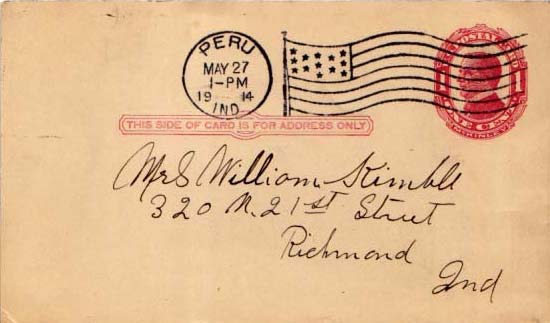 PERU
MAY 27
1-PM
19 14
IND
THIS SIDE OF CARD IS FOR ADDRESS ONLY
1 1
Mrs William Kimble
320 N. 21st Street
Richmond
Ind